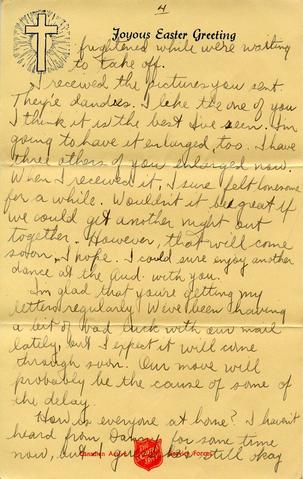 4
Joyous Easter Greeting
frightened while were waiting
to take off.
I received the pictures you sent.
They're dandies. I like the one of you
I think it is the best I've seen. I'm
going to have it enlarged, too. I have
three others of you enlarged now.
When I received it, I sure felt lonesome
for a while. Wouldn't it be great if
we could get another night out
together. However, that will come
soon, I hope. I could sure enjoy another
dance at the Aud. with you.
I'm glad that you're getting my
letters regularly. We've been having
a bit of bad luck with our mail
lately, but I expect it will come
through soon. Our move will
probably be the cause of some of
the delay.
How is everyone at home? I haven't
heard from for some time
now, and I he's still okay
Canadian
The Salvation Army
Forces